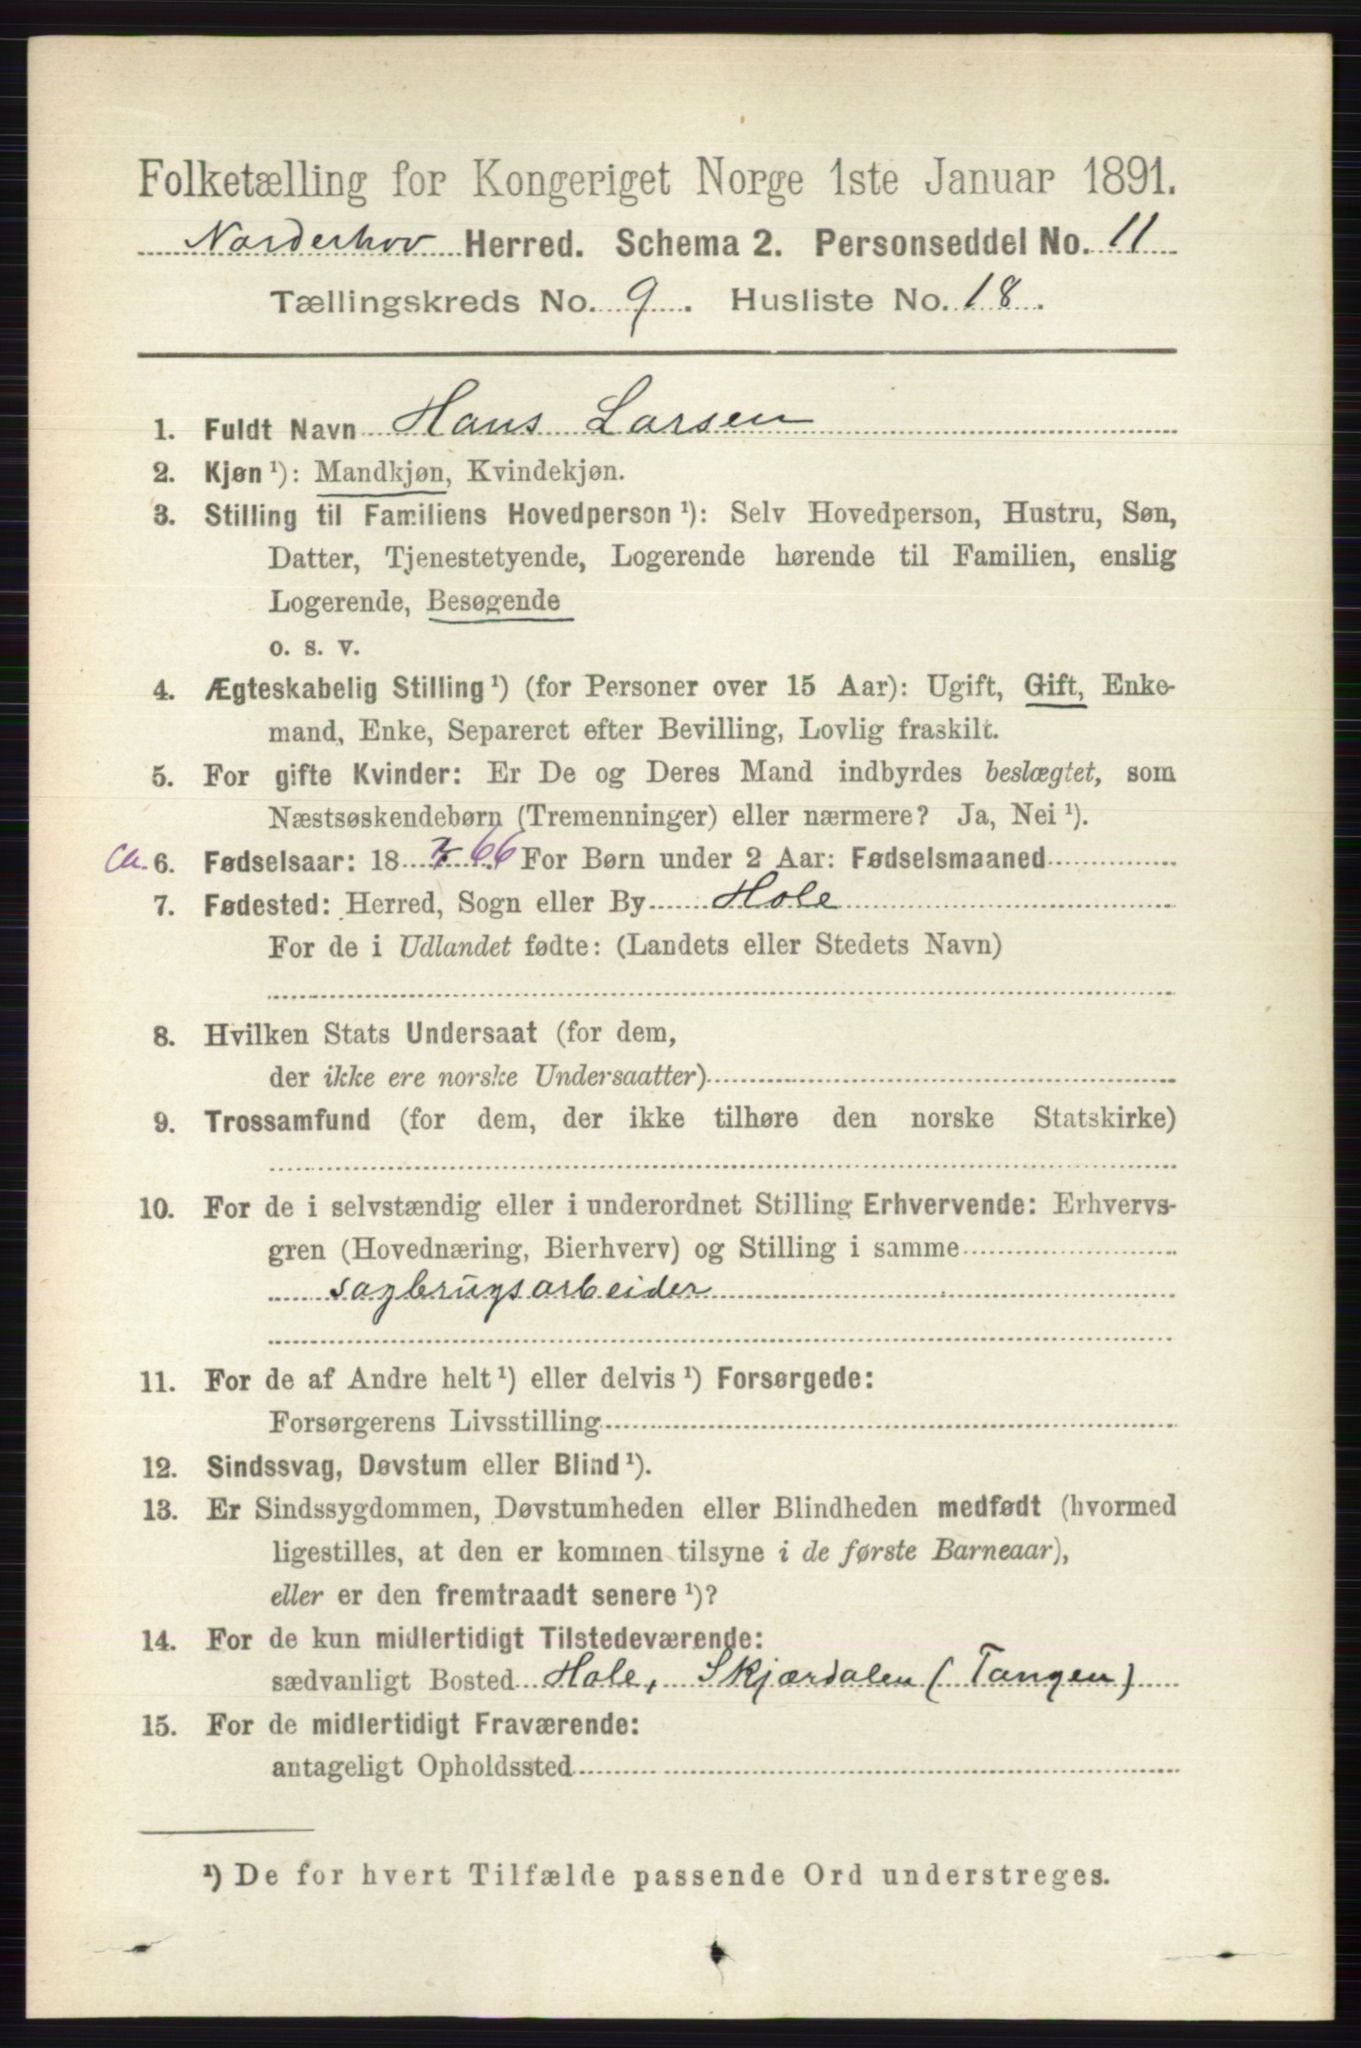 Folketælling for Kongeriget Norge 1ste Januar 1891.
Norderhov Herred. Schema 2. Personseddel No. 11
Tællingskreds No. 9. Husliste No. 18.
1. Fuldt Navn Hans Larsen
2. Kjøn ¹): Mandkjøn, Kvindekjøn.
3. Stilling til Familiens Hovedperson ¹): Selv Hovedperson, Hustru, Søn,
Datter, Tjenestetyende, Logerende hørende til Familien, enslig
Logerende, Besøgende
o. s. v.
4. Ægteskabelig Stilling ¹) (for Personer over 15 Aar): Ugift, Gift, Enke-
mand, Enke, Separeret efter Bevilling, Lovlig fraskilt.
5. For gifte Kvinder: Er De og Deres Mand indbyrdes beslægtet, som
Næstsøskendebørn (Tremenninger) eller nærmere? Ja, Nei ¹).
ca. 6. Fødselsaar: 18 66 For Børn under 2 Aar: Fødselsmaaned
7. Fødested: Herred, Sogn eller By Hole
For de i Udlandet fødte: (Landets eller Stedets Navn)
8. Hvilken Stats Undersaat (for dem,
der ikke ere norske Undersaatter)
9. Trossamfund (for dem, der ikke tilhøre den norske Statskirke)
10. For de i selvstændig eller i underordnet Stilling Erhvervende: Erhvervs-
gren (Hovednæring, Bierhverv) og Stilling i samme
sagbrugsarbeider
11. For de af Andre helt ¹) eller delvis ¹) Forsørgede:
Forsørgerens Livsstilling
12. Sindssvag, Døvstum eller Blind ¹).
13. Er Sindssygdommen, Døvstumheden eller Blindheden medfødt (hvormed
ligestilles, at den er kommen tilsyne i de første Barneaar),
eller er den fremtraadt senere ¹)?
14. For de kun midlertidigt Tilstedeværende:
sædvanligt Bosted Hole, Skjærdalen (Tangen)
15. For de midlertidigt Fraværende:
antageligt Opholdssted
¹) De for hvert Tilfælde passende Ord understreges.